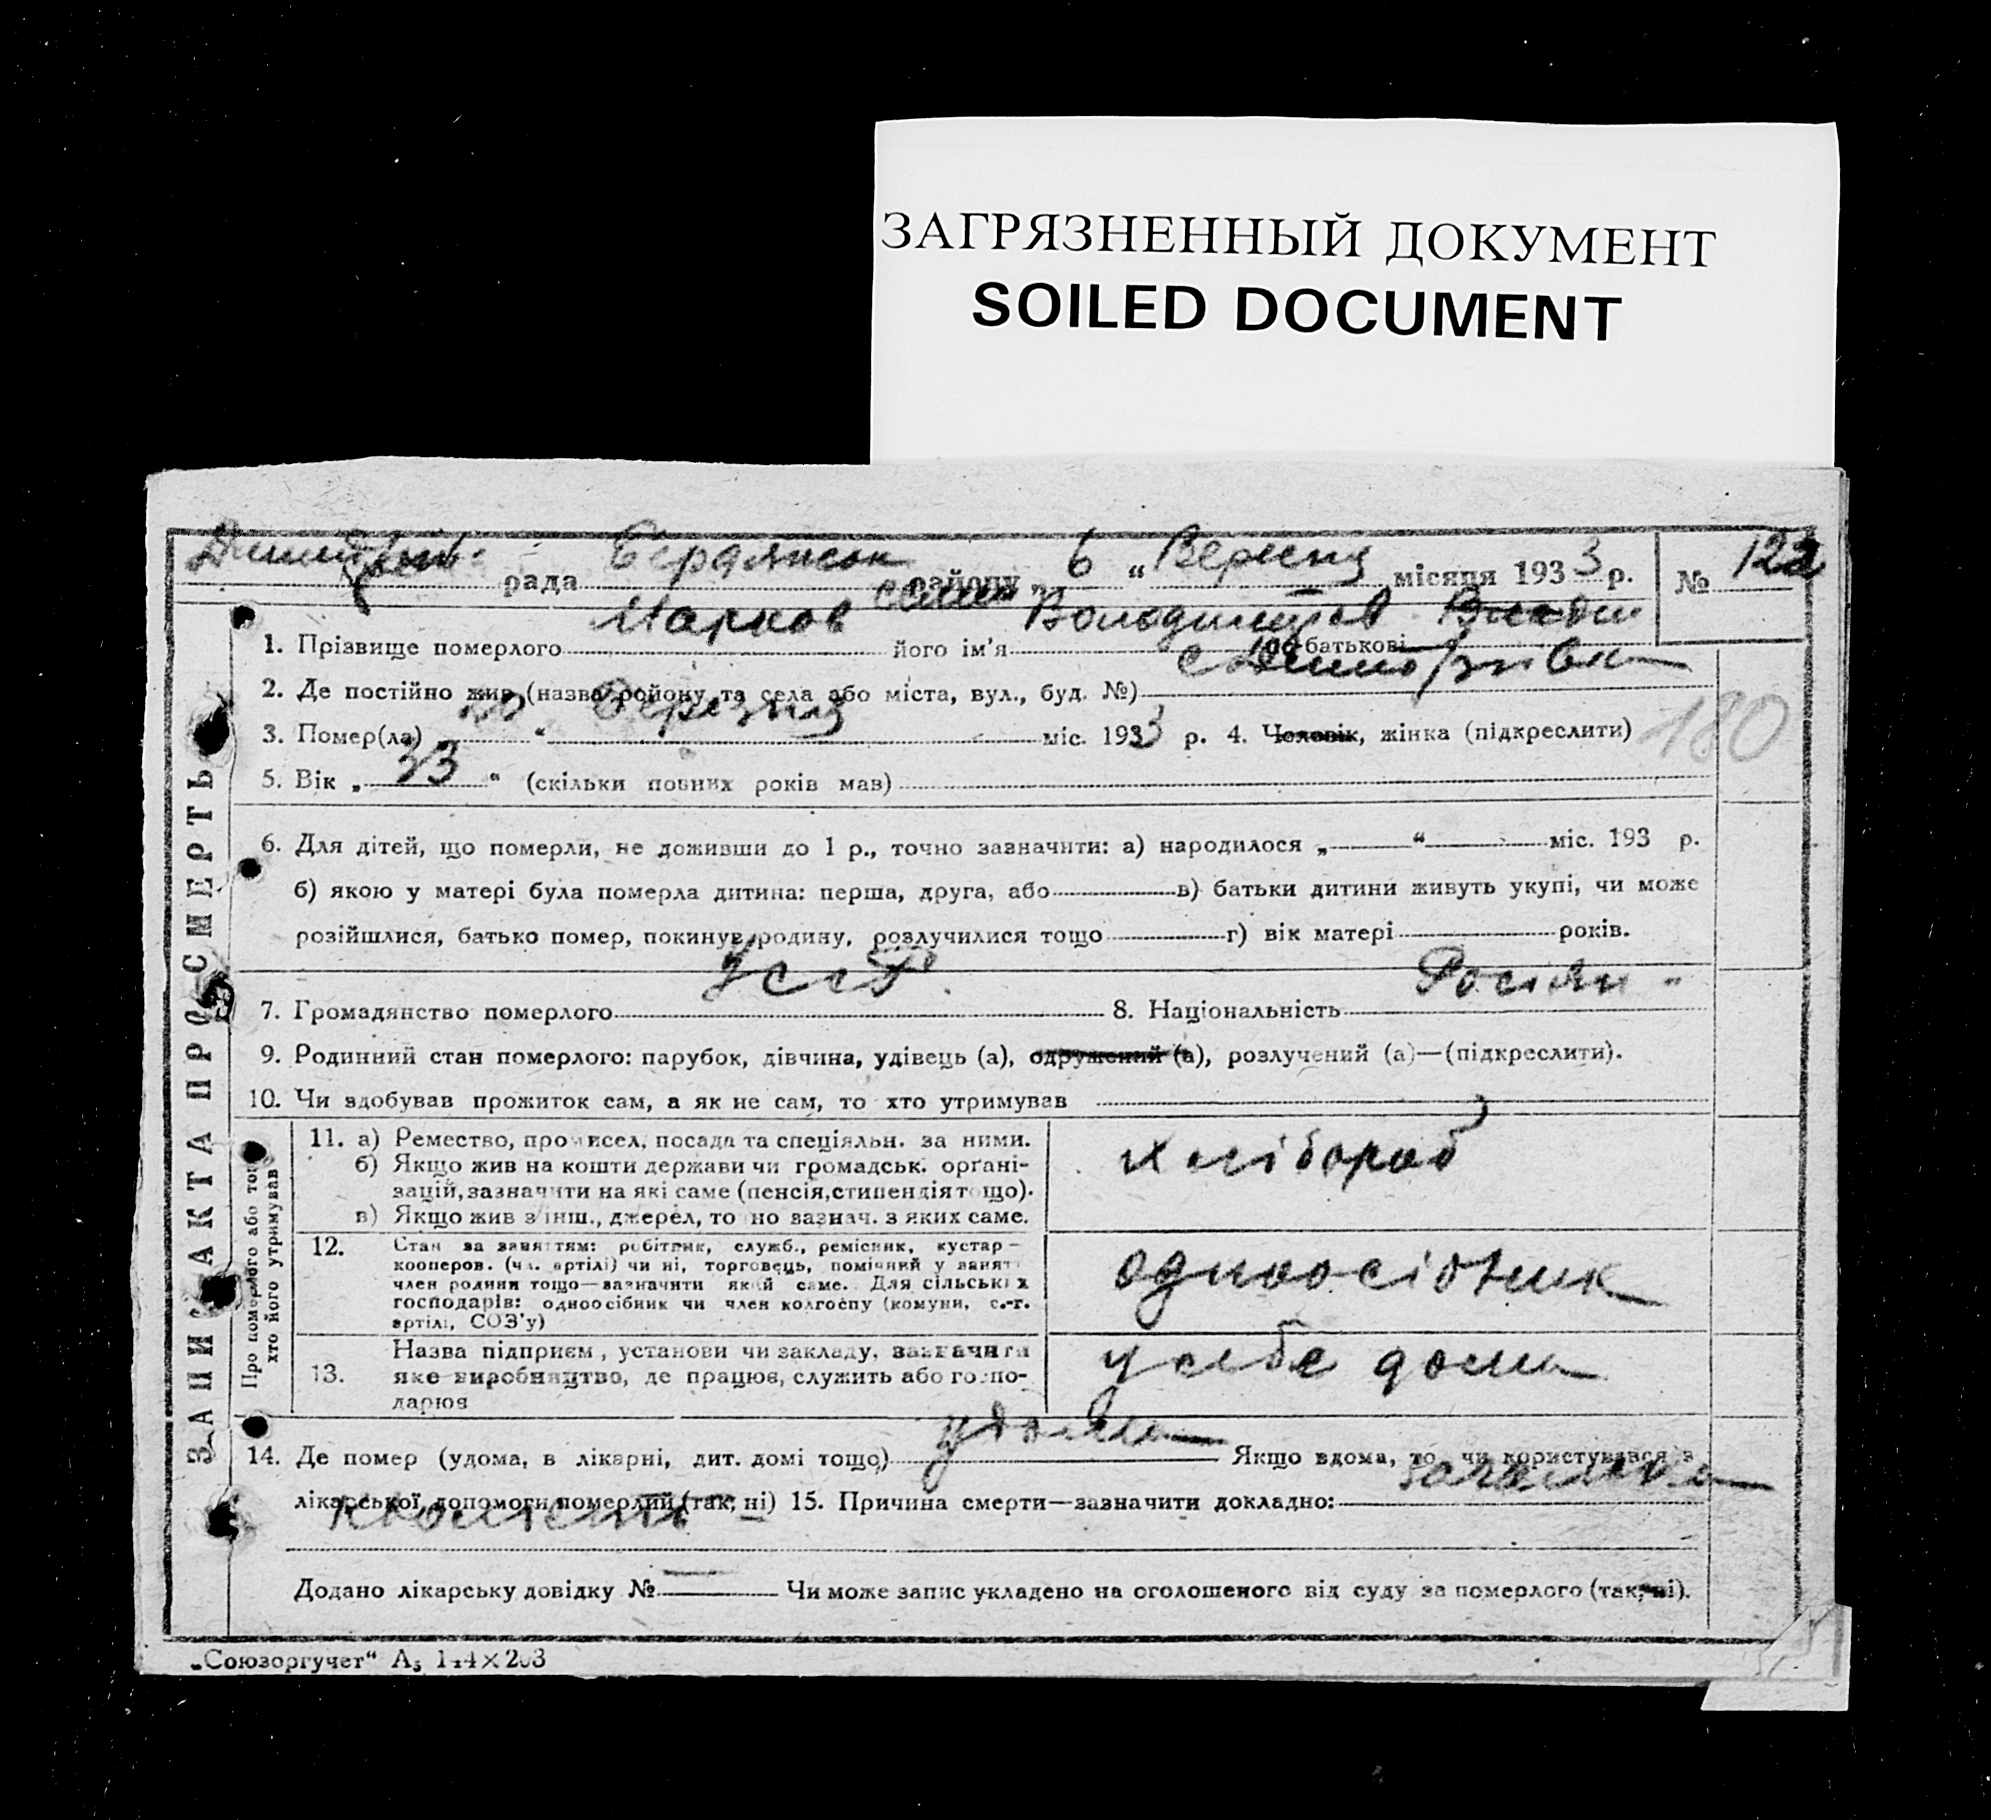 ЗАГРЯЗНЕННЫЙ ДОКУМЕНТ
SOILED DOCUMENT
рада Бердянськ району „ 6 “ Вересня місяця 1933 р. № 122
ЗАПИС АКТА ПРО СМЕРТЬ
1. Прізвище померлого Марков його ім'я Володимир по батькові
2. Де постійно жив (назва району та села або міста, вул., буд. №)
3. Помер(ла) 20 “ Березня міс. 1933 р. 4. Чоловік, жінка (підкреслити)
180
5. Вік „ 33 “ (скільки повних років мав)
6. Для дітей, що померли, не доживши до 1 р., точно зазначити: а) народилося „ “ міс. 193 р.
б) якою у матері була померла дитина: перша, друга, або в) батьки дитини живуть укупі, чи може
розійшлися, батько помер, покинув родину, розлучилися тощо г) вік матері років.
7. Громадянство померлого УССР 8. Національність Росіян
9. Родинний стан померлого: парубок, дівчина, удівець (а), одружений (а), розлучений (а)—(підкреслити).
10. Чи здобував прожиток сам, а як не сам, то хто утримував
Про померлого або того хто його утримував
11. а) Ремество, промисел, посада та спеціяльн. за ними.
б) Якщо жив на кошти держави чи громадськ. орґані-
зацій, зазначити на які саме (пенсія, стипендія тощо).
в) Якщо жив з інш., джерел, то но зазнач. з яких саме.
хлібороб
12. Стан за заняттям: робітник, служб., ремісник, кустар—
кооперов. (чл. артілі) чи ні, торговець, помічний у занят.
член родини тощо—зазначити який саме. Для сільських
господарів: одноосібник чи член колгоспу (комуни, с.-г.
артілі, СОЗ'у)
одноосібник
13. Назва підприєм, установи чи закладу, зазначити
яке виробництво, де працює, служить або госпо-
дарює
у себе дома
14. Де помер (удома, в лікарні, дит. домі тощо) удома Якщо вдома, то чи користувався з
лікарської допомоги померлий (так, ні) 15. Причина смерти—зазначити докладно:
Додано лікарську довідку № — Чи може запис укладено на оголошеного від суду за померлого (так, ні).
„Союзоргучет“ А₅ 144×203